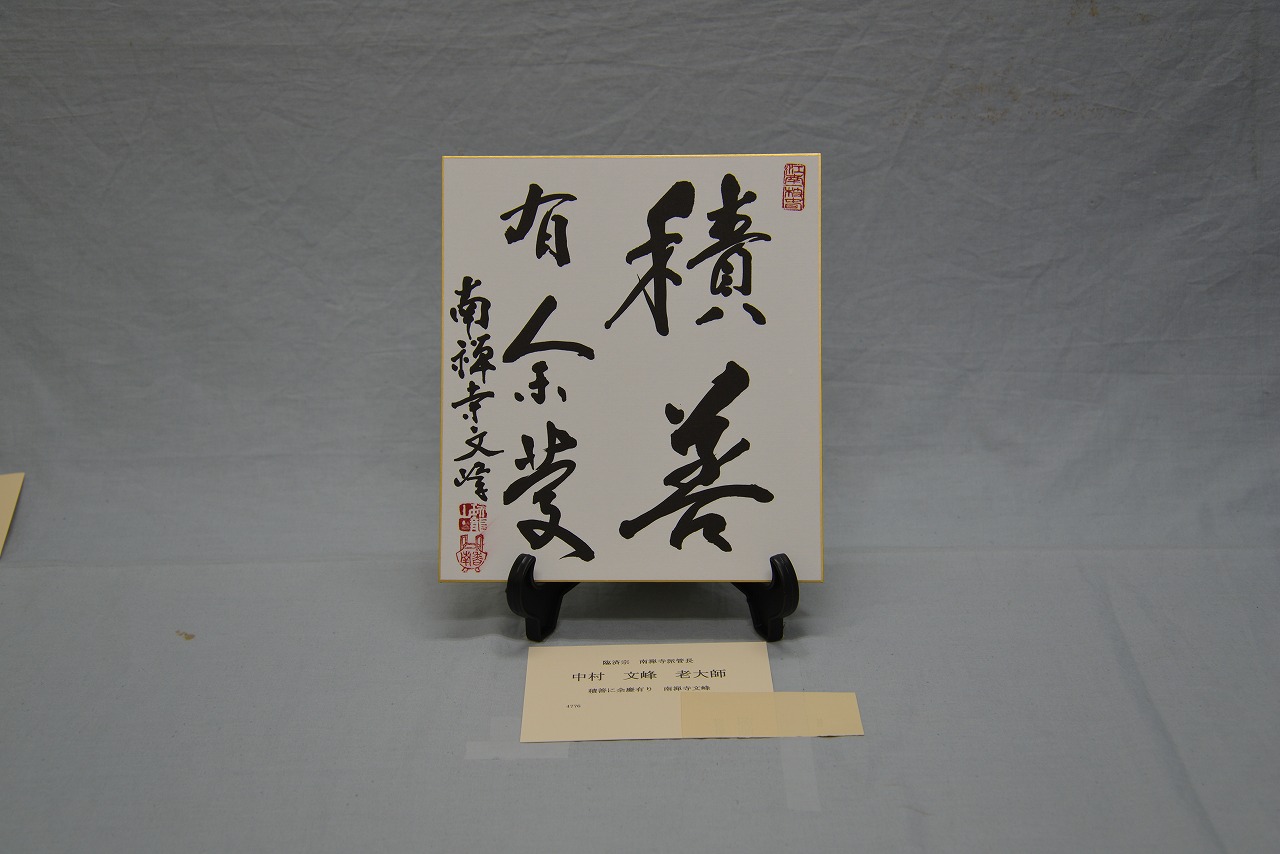 積善
有余慶
南禅寺文峰
臨済宗　南禅寺派管長
中村　文峰　老大師
積善に余慶有り　南禅寺文峰